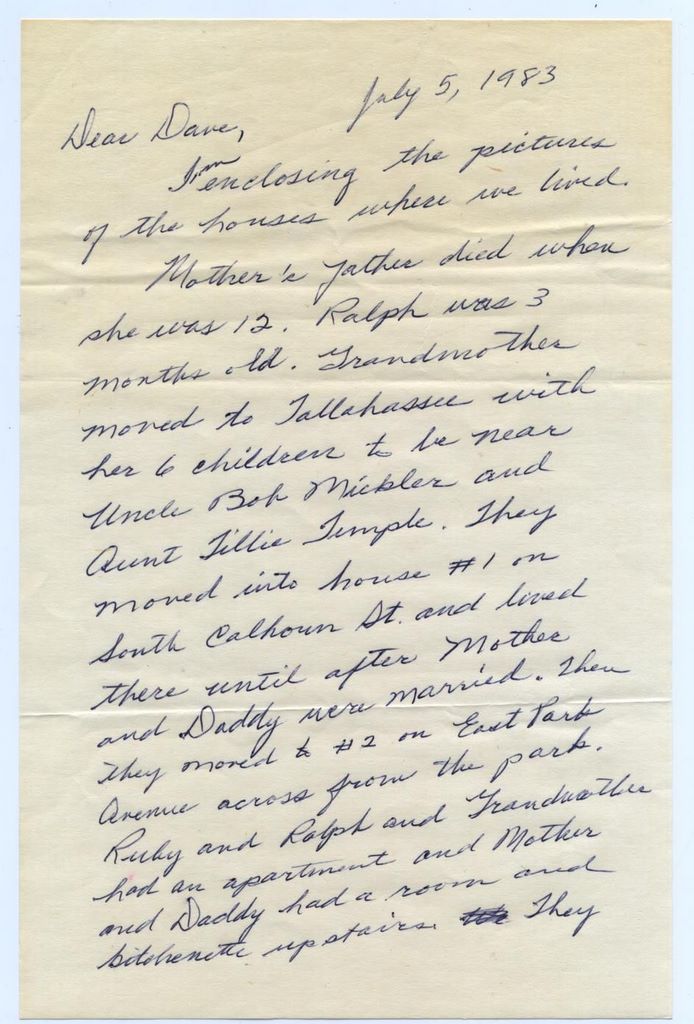 July 5, 1983
Dear Dave,
I'm enclosing the pictures
of the houses where we lived.
Mother's father died when
she was 12. Ralph was 3
months old. Grandmother
moved to Tallahassee with
her 6 children to be near
Uncle Bob Mickler and
Aunt Tillie Temple. They
moved into house #1 on
South Calhoun St. and lived
there until after Mother
and Daddy were married. Then
they moved to #2 on East Park
Avenue across from the park.
Ruby and Ralph and Grandmother
had an apartment and Mother
and Daddy had a room and
kitchenette upstairs. They